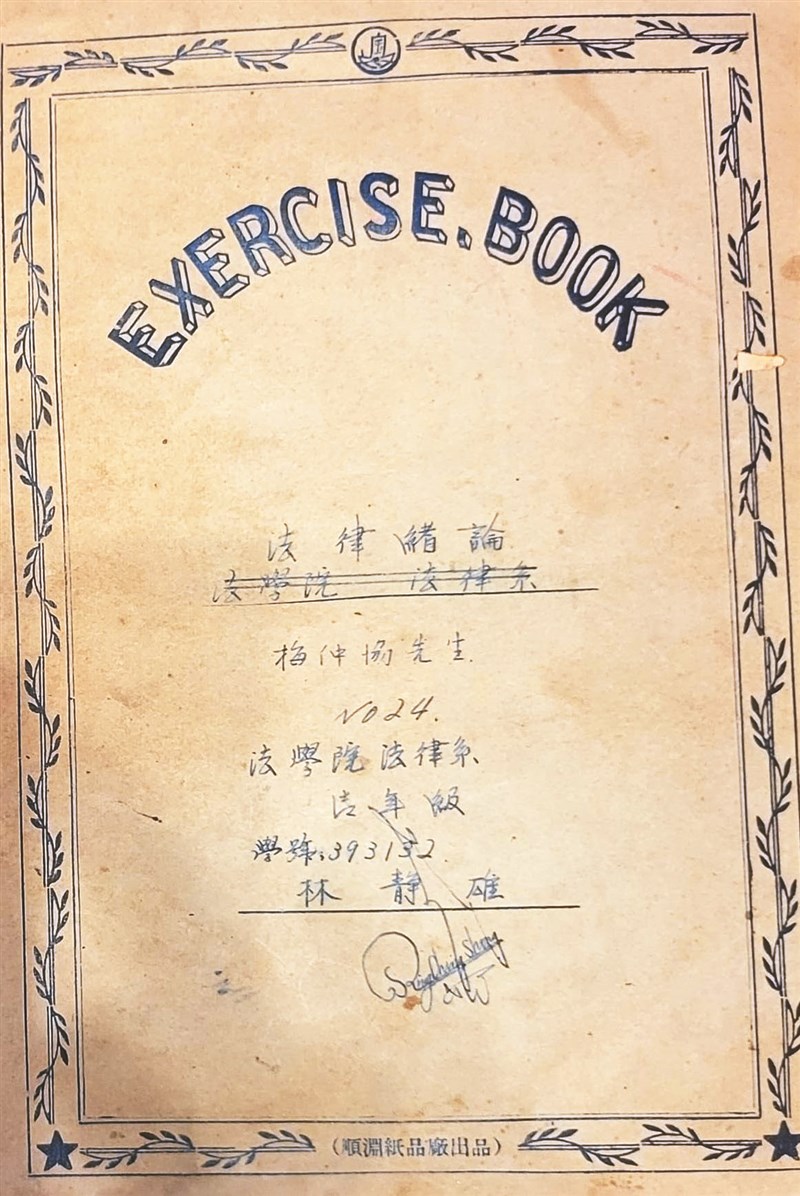 EXERCISE.BOOK
法律緒論
法學院 法律系
梅仲協先生.
NO 24.
法學院法律系
年級
學號:393132.
林靜雄
(順淵紙品廠出品)